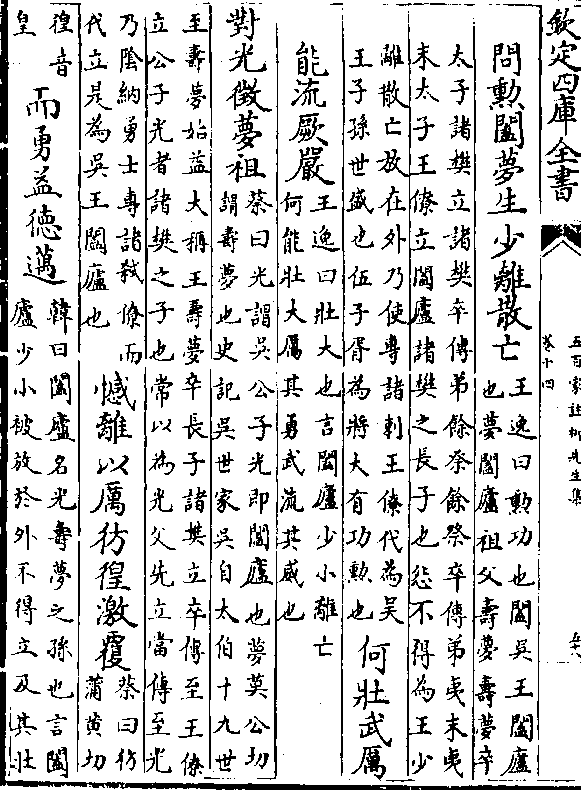 欽定四庫全書
五百家註柳先生集
卷十四
問勲闔夢生少離散亡
王逸曰勲功也闔吳王闔廬
也夢闔廬祖父壽夢壽夢卒
太子諸樊立諸樊卒傳弟餘祭餘祭卒傳弟夷末夷
末太子王僚立闔廬諸樊之長子也怨不得為王少
離散亡放在外乃使專諸刺王僚代為吳
王子孫世盛也伍子胥為將大有功勲也
何壯武厲
能流厥嚴
王逸曰壯大也言闔廬少小離亡
何能壯大厲其勇武流其威也
對光徵夢祖
蔡曰光謂吳公子光即闔廬也夢莫公切
謂壽夢也史記吳世家吳自太伯十九世
至壽夢始益大稱王壽夢卒長子諸樊立卒傳至王僚
立公子光者諸樊之子也常以為光父先立當傳至光
乃陰納勇士專諸弑僚而
代立是為吳王闔廬也
憾離以厲彷徨激覆
蔡曰彷
蒲黄切
徨音
皇
而勇益德邁
韓曰闔廬名光壽夢之孫也言闔
廬少小被放於外不得立及其壯